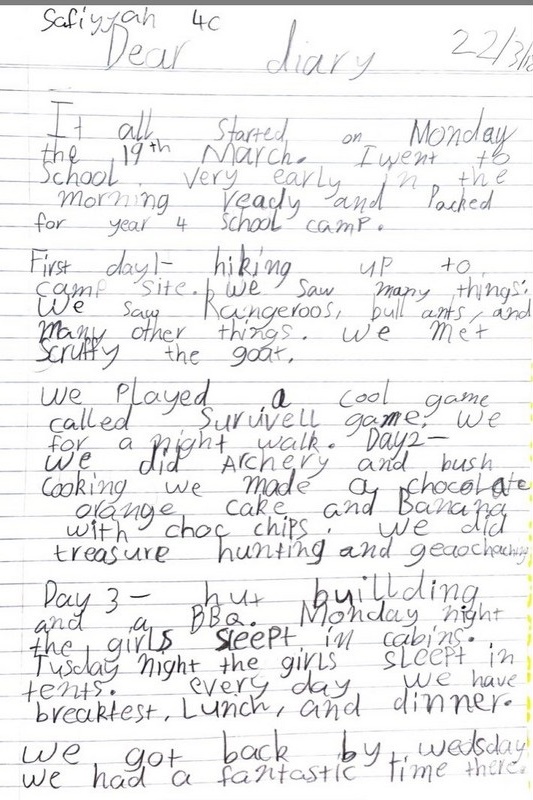 Safiyyah 4C
Dear diary 22/3/18
It all started on Monday
the 19th March. I went to
School very early in the
morning ready and Packed
for year 4 school camp.
First day1- hiking up to
camp site. We saw many things.
We saw Kangeroos, bull ants, and
many other things. We met
Scruffy the goat.
We Played a cool game
called Survivell game. We
for a night walk. Day2-
We did Archery and bush
cooking we made a chocolate
orange cake and Banana
with choc chips. We did
treasure hunting and geaochaching
Day 3- hut buillding
and a BBQ. Monday night
the girls sleept in cabins.
Tusday night the girls sleept in
tents. every day we have
breaktest, Lunch, and dinner.
We got back by wedsday
We had a fantastic time there.